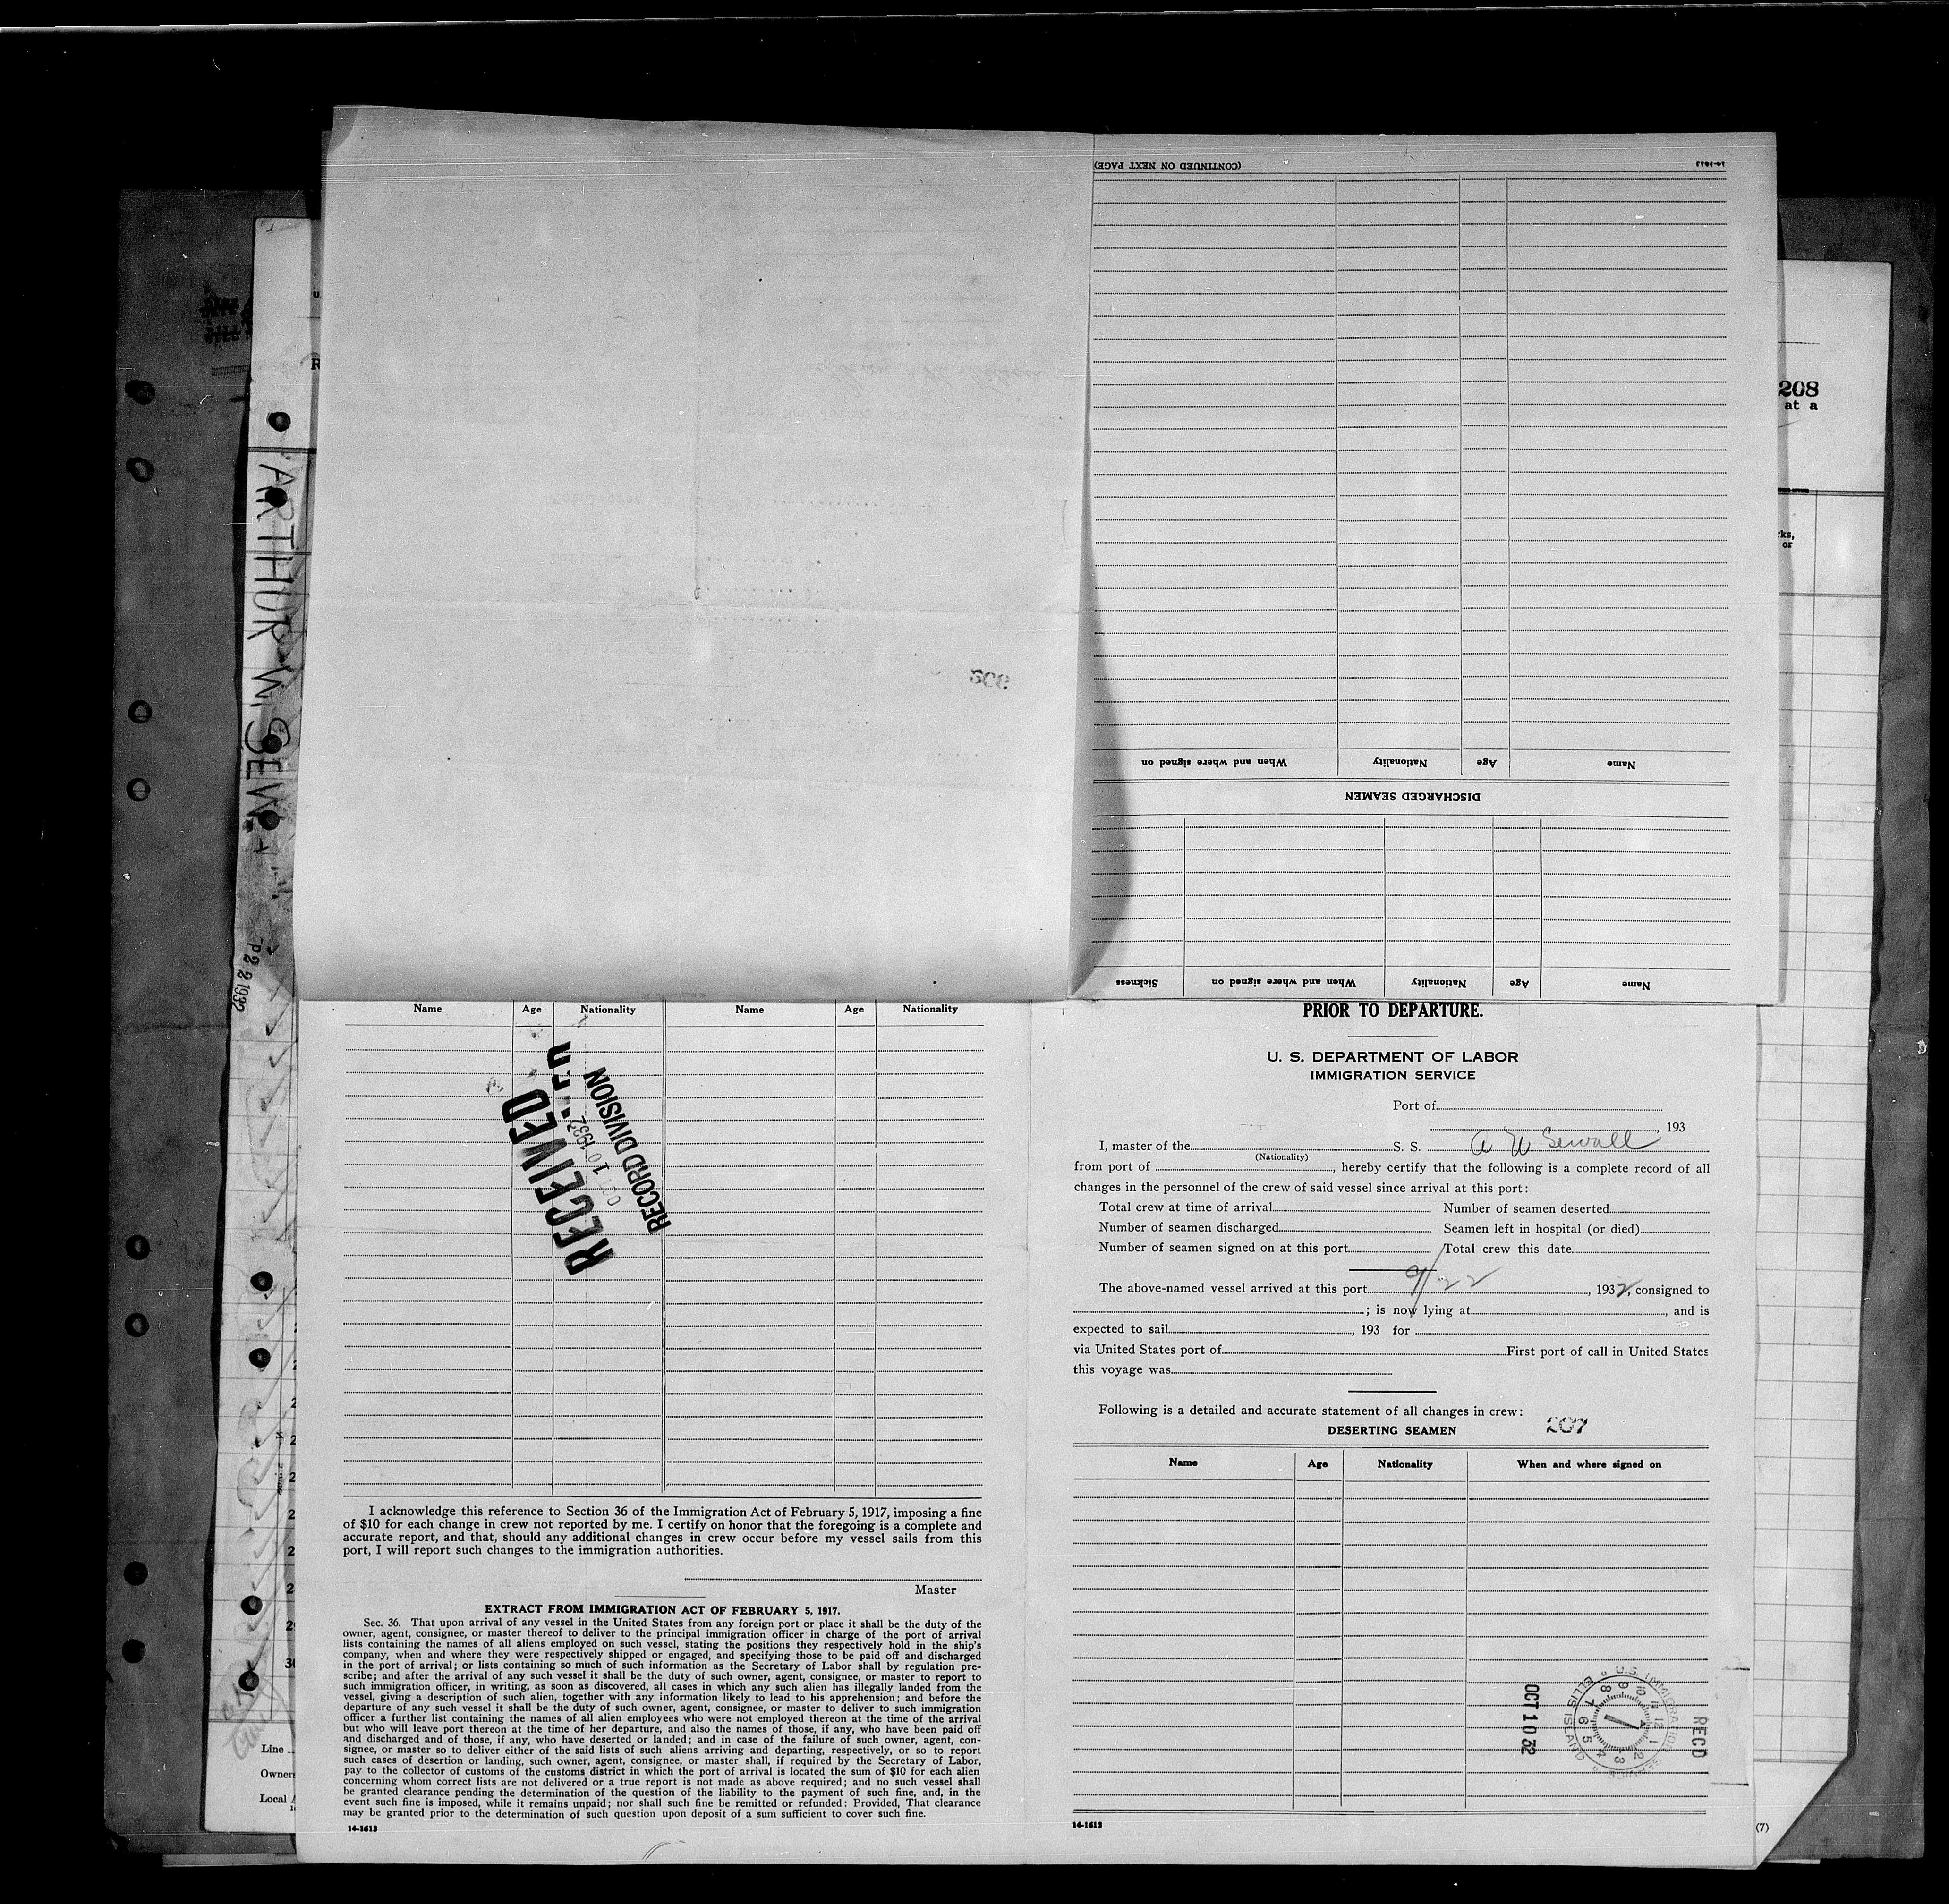 (CONTINUED ON NEXT PAGE)
14-1613
When and where signed on Nationality Age Name
DISCHARGED SEAMEN
Sickness When and where signed on Nationality Age Name
208
at a
ks,
or
ARTHUR W. SEW
P 2 2 1932
Name Age Nationality Name Age Nationality
RECEIVED
1932
RECORD DIVISION
I acknowledge this reference to Section 36 of the Immigration Act of February 5, 1917, imposing a fine
of $10 for each change in crew not reported by me. I certify on honor that the foregoing is a complete and
accurate report, and that, should any additional changes in crew occur before my vessel sails from this
port, I will report such changes to the immigration authorities.
Master
EXTRACT FROM IMMIGRATION ACT OF FEBRUARY 5, 1917.
Sec. 36. That upon arrival of any vessel in the United States from any foreign port or place it shall be the duty of the
owner, agent, consignee, or master thereof to deliver to the principal immigration officer in charge of the port of arrival
lists containing the names of all aliens employed on such vessel, stating the positions they respectively hold in the ship's
company, when and where they were respectively shipped or engaged, and specifying those to be paid off and discharged
in the port of arrival; or lists containing so much of such information as the Secretary of Labor shall by regulation pre-
scribe; and after the arrival of any such vessel it shall be the duty of such owner, agent, consignee, or master to report to
such immigration officer, in writing, as soon as discovered, all cases in which any such alien has illegally landed from the
vessel, giving a description of such alien, together with any information likely to lead to his apprehension; and before the
departure of any such vessel it shall be the duty of such owner, agent, consignee, or master to deliver to such immigration
officer a further list containing the names of all alien employees who were not employed thereon at the time of the arrival
but who will leave port thereon at the time of her departure, and also the names of those, if any, who have been paid off
and discharged and of those, if any, who have deserted or landed; and in case of the failure of such owner, agent, con-
signee, or master so to deliver either of the said lists of such aliens arriving and departing, respectively, or so to report
such cases of desertion or landing, such owner, agent, consignee, or master shall, if required by the Secretary of Labor,
pay to the collector of customs of the customs district in which the port of arrival is located the sum of $10 for each alien
concerning whom correct lists are not delivered or a true report is not made as above required; and no such vessel shall
be granted clearance pending the determination of the question of the liability to the payment of such fine, and, in the
event such fine is imposed, while it remains unpaid; nor shall such fine be remitted or refunded: Provided, That clearance
may be granted prior to the determination of such question upon deposit of a sum sufficient to cover such fine.
14-1613
Line
Owner
Local
PRIOR TO DEPARTURE.
U. S. DEPARTMENT OF LABOR
IMMIGRATION SERVICE
Port of
, 193
I, master of the S. S. A W Sewall
(Nationality)
from port of , hereby certify that the following is a complete record of all
changes in the personnel of the crew of said vessel since arrival at this port:
Total crew at time of arrival Number of seamen deserted
Number of seamen discharged Seamen left in hospital (or died)
Number of seamen signed on at this port Total crew this date
The above-named vessel arrived at this port 9/22, 1932, consigned to
; is now lying at , and is
expected to sail , 193 for
via United States port of First port of call in United States
this voyage was
Following is a detailed and accurate statement of all changes in crew:
DESERTING SEAMEN 207
Name Age Nationality When and where signed on
OCT 10 32
U.S. IMMIGRATION SERVICE ELLIS ISLAND
REC'D
14-1613
(7)